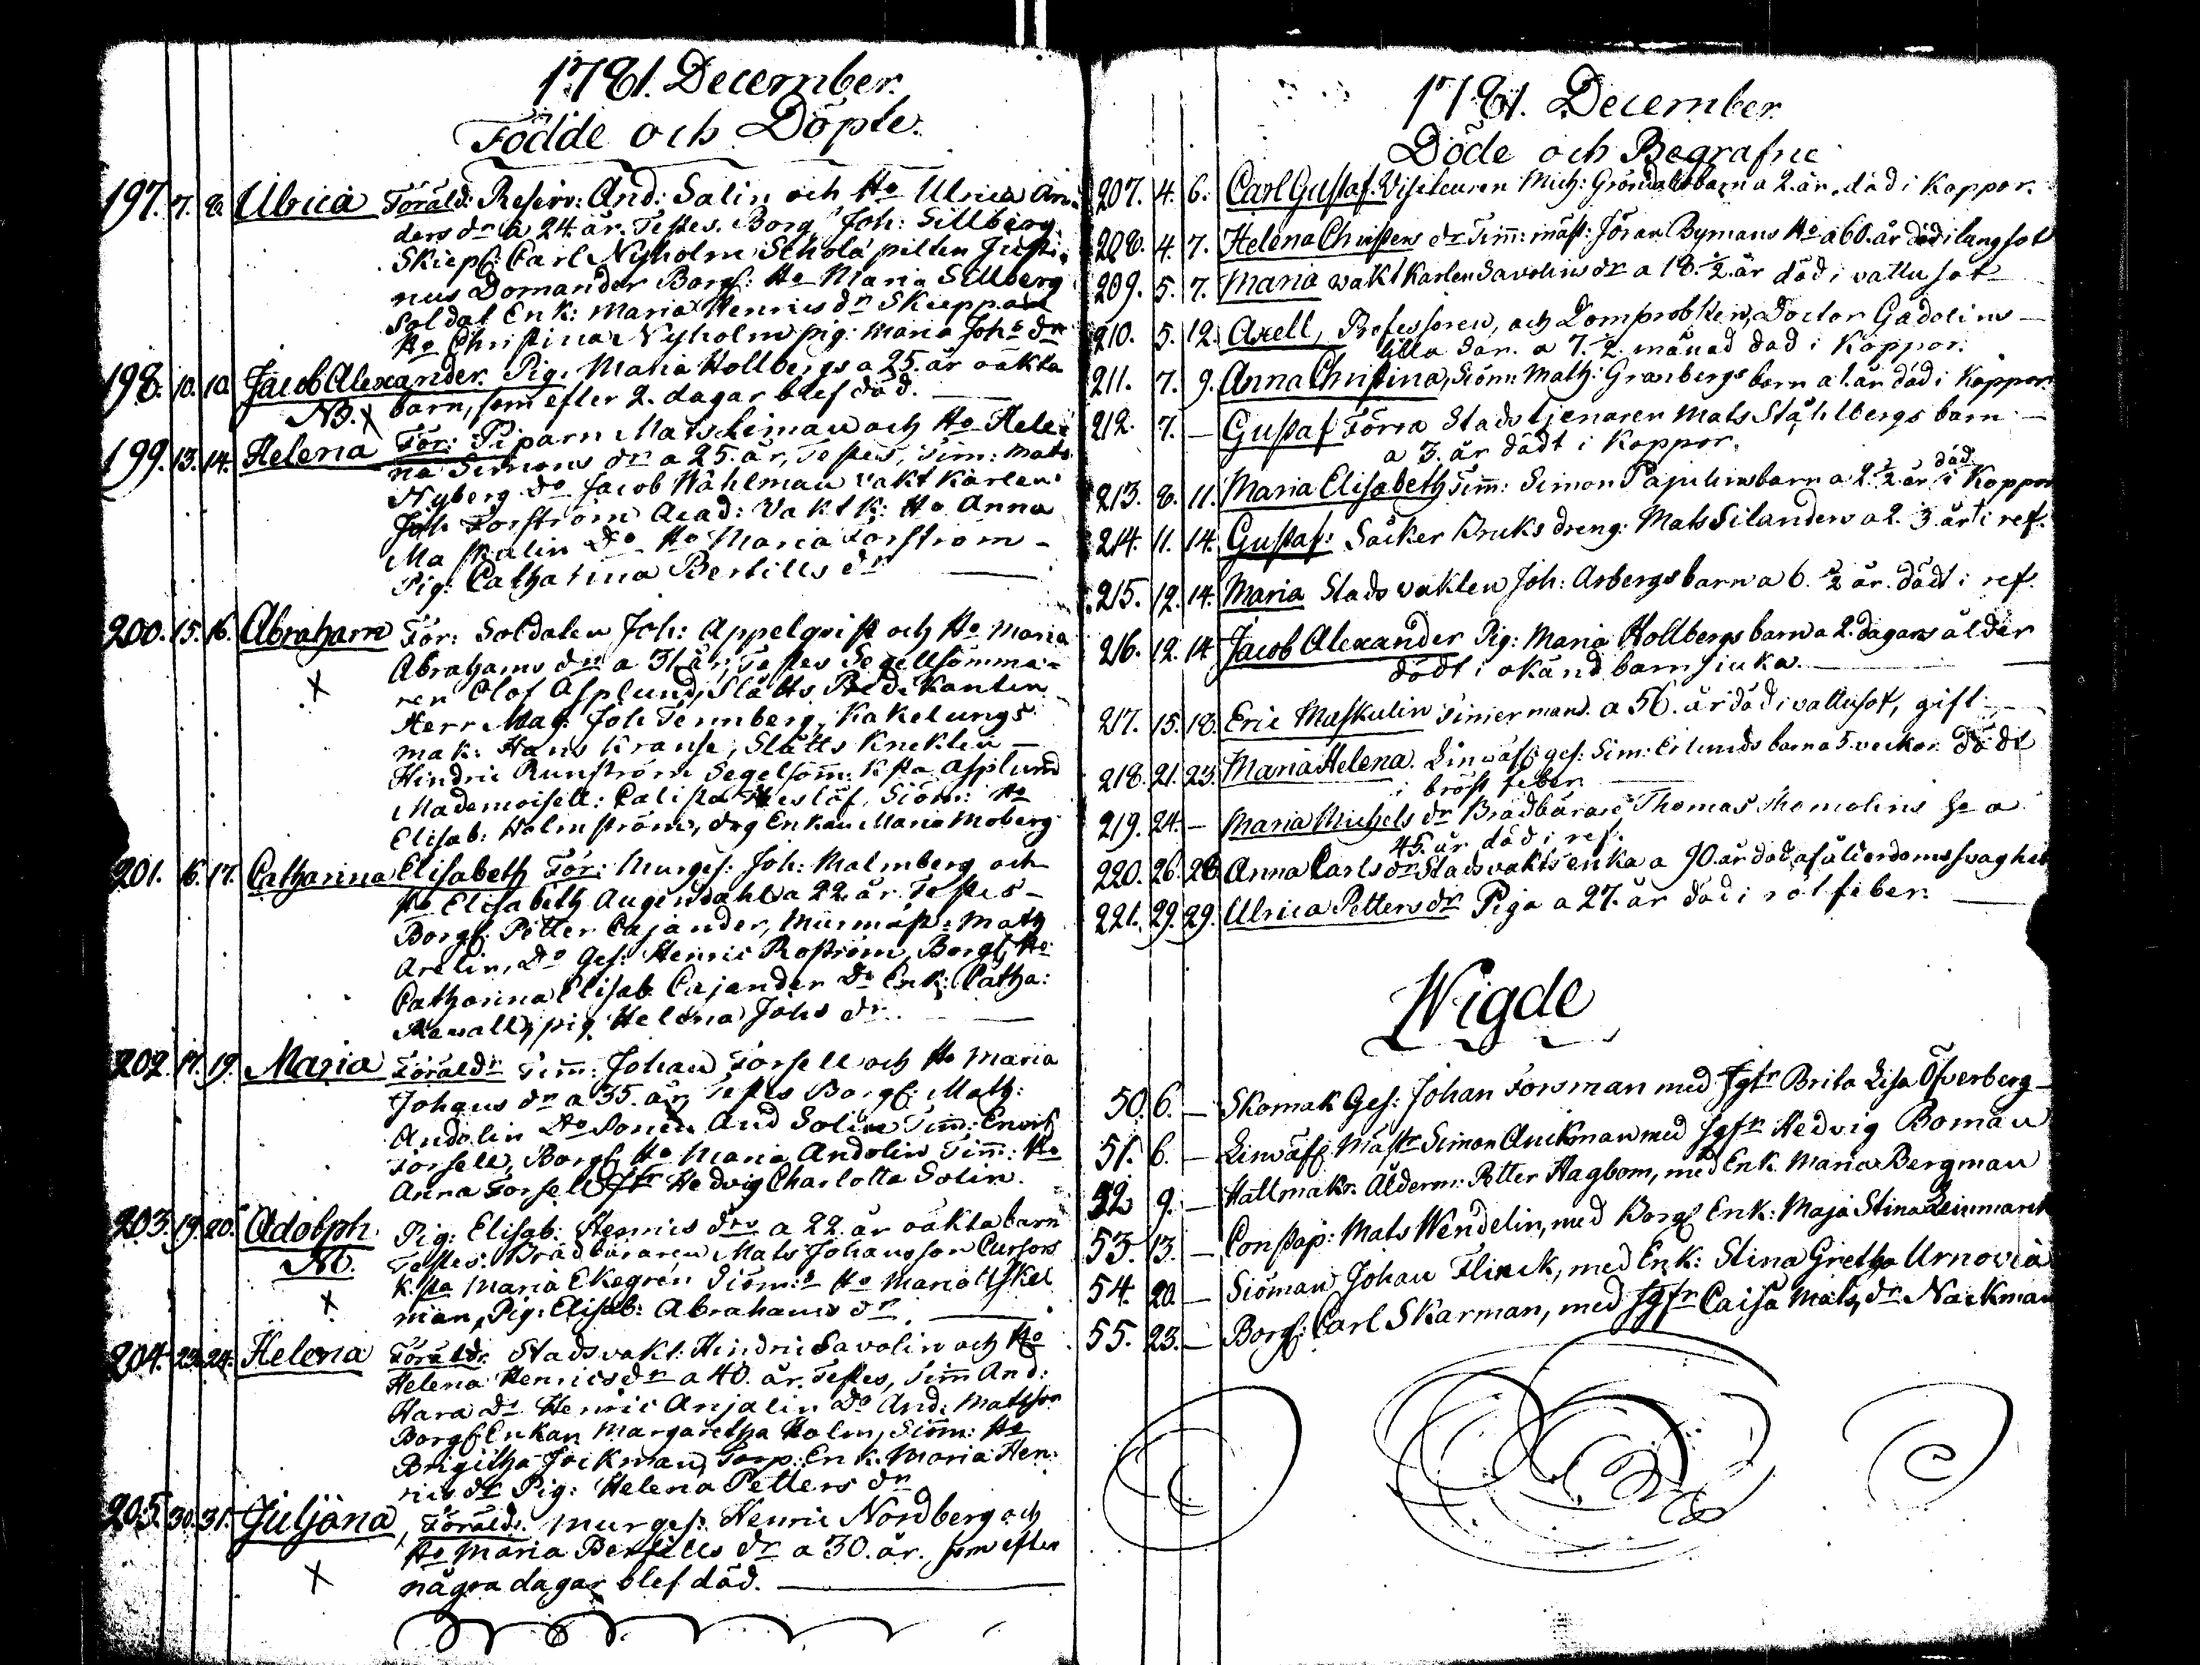 1781. December.
Födde och Döpte.
197. 7. 8. Ulrica Föräld: Reserv: And: Salin och Ho Ulrica An-
ders dr a 24 år. Testes. Borg: Joh: Sillberg.
Skiepp: Carl Nyholm Schola pilten Justi-
nus Domander Borgs: Ho Maria Sillberg
Soldat Enk: Maria Henrics dr Skiepparе
Ho Christina Nyholm pig: Maria Johs dr
198. 10. 10. Jacob Alexander. Pig: Maria Hollbergs a 25. år oäkta
NB. X barn, som efter 2. dagar blef död.
199. 13. 14. Helena För: Piparn Mats Leiman och Ho Hele-
na Simons dr a 25. år, Testes, Tim: Mats
Nyberg Do Jacob Wåhlman vakt Karlen
Joh: Forström Acad: Vakt k: Ho Anna
Maskulin Do Ho Maria Forström -
Pig: Catharina Bertills dr
200. 15. 16. Abraham För: Soldaten Joh: Appelqvist och Ho Maria
Abrahams dr a 31 år, Testes Segellsömma-
X ren Olof Asplund, Slåtts Predikanten
Herr Mag: Joh Tennberg, Kakelungs
mak: Hans Kranse, Slåtts Knekten
Hindric Runström Segelsöm: k sta Asplund
Mademoisell: Calista Heslöf, Siöm: Ho
Elisab: Holmströms, drg Enkan Maria Moberg
201. 16. 17. Catharina Elisabeth För: Murges: Joh: Malmberg och
Ho Elisabeth Augendahl a 22. år. Testes -
Borgs: Petter Cajander, Murmäst: Math
Arelin, Do Ges: Henric Roström, Borgs: Ho
Catharina Elisab Cajander Do Enk: Catha:
pig Helena Johs dr.
202. 17. 19. Maria Föräldr Tim: Johan Forsell och Ho Maria
Johans dr a 35. år, Testes Borgs: Math:
Andolin Do Sonen And Solin Tim: Enevs
Forsell, Borgs Ho Maria Andolin Tim: Ho
Anna Forsell Jfr Hedvig Charlotta Solin.
203. 19. 20. Adolph Pig: Elisab: Henrics drs a 22. år oäkta barn
NB. Testes. Brädbäraren Mats Johansson Cursors
X k. sta Maria Ekegren Siöm: Ho Maria Uskel
man, Pig: Elisab: Abrahams dr
204. 23. 24. Helena Föräldr. Stads vakt: Hindric Savolin och Ho
Helena Henrics dr a 40. år. Testes, Tim And:
Hara Do Henric Anjalin Do And: Matsson
Borgs Enkan Margaretha Holm, Siöm: Ho
Brigitha Jäckman, Torp: Enk: Maria Hen-
rics dr Pig: Helena Petters dr
205. 30. 31. Juljana, Föräldr. Murges: Henric Nordberg och
X Ho Maria Bertills dr a 30. år. som efter
några dagar blef död.
1781. December
Döde och Begrafne
207. 4. 6. Carl Gustaf. Visiteuren Mich: Gröndals barn a 2. år. död i Koppor.
208. 4. 7. Helena Christers dr Tim: mäst: Jöran Bymans Ho a 60. år död i lungsot
209. 5. 7. Maria vakt karlen Savolins dr a 18. ½ år död i vattusot
210. 5. 12. Axell, Professoren, och Domprobsten, Doctor Gadolins -
lilla son. a 7. ½ månad död i Koppor.
211. 7. 9. Anna Christina, Siöm: Math: Granbergs barn a 1. år död i Koppor
212. 7. - Gustaf Förra Stads tjenaren Mats Ståhlbergs barn -
a 3. år dödt i Koppor.
213. 8. 11. Maria Elisabeth Tim: Simon Papulins barn a 2. ½ år död i Koppor
214. 11. 14. Gustaf: Såcker Bruks dreng: Mats Silanders a 2. 3. årt i ref.
215. 12. 14. Maria Stads vakten Joh: Arbergs barn a 6. ½ år. dödt i ref.
216. 12. 14 Jacob Alexander Pig: Maria Hollbergs barn a 2. dagars ålder
dödt i okänd barnsiuka.
217. 15. 18. Eric Maskulin Timerman. a 56. år död i vattusot, gift
218. 21. 23. Maria Helena. Linväf: ges: Sim: Erlunds barn a 5. veckor. dödt
i bröst feber.
219. 24. - Maria Michels dr Brädbärare Thomas Thomolins Ho a
45. år död i ref.
220. 26. 26 Anna Carls dr Stadsvakts enka a 90. år död af ålderdoms svaghet
221. 29. 29. Ulrica Petters dr Piga a 27. år död i rotfeber.
Wigde
50. 6. - Skomak Ges: Johan Forsman med Jgfr Brita Lisa Öfverberg -
51. 6. - Linväf: Mästr Simon Anckman med Jgfr Hedvig Boman
52 9. - Hattmakr. Ålderm: Petter Hagbom, med Enk Maria Bergman
53. 13. - Constap: Mats Wendelin, med Borgs Enk: Maja Stina Leinmarck
54. 20. - Siöman Johan Flinck, med Enk: Stina Gretha Urnovia
55. 23. - Borgs: Carl Skarman, med Jgfr Caisa Mats dr Nackman